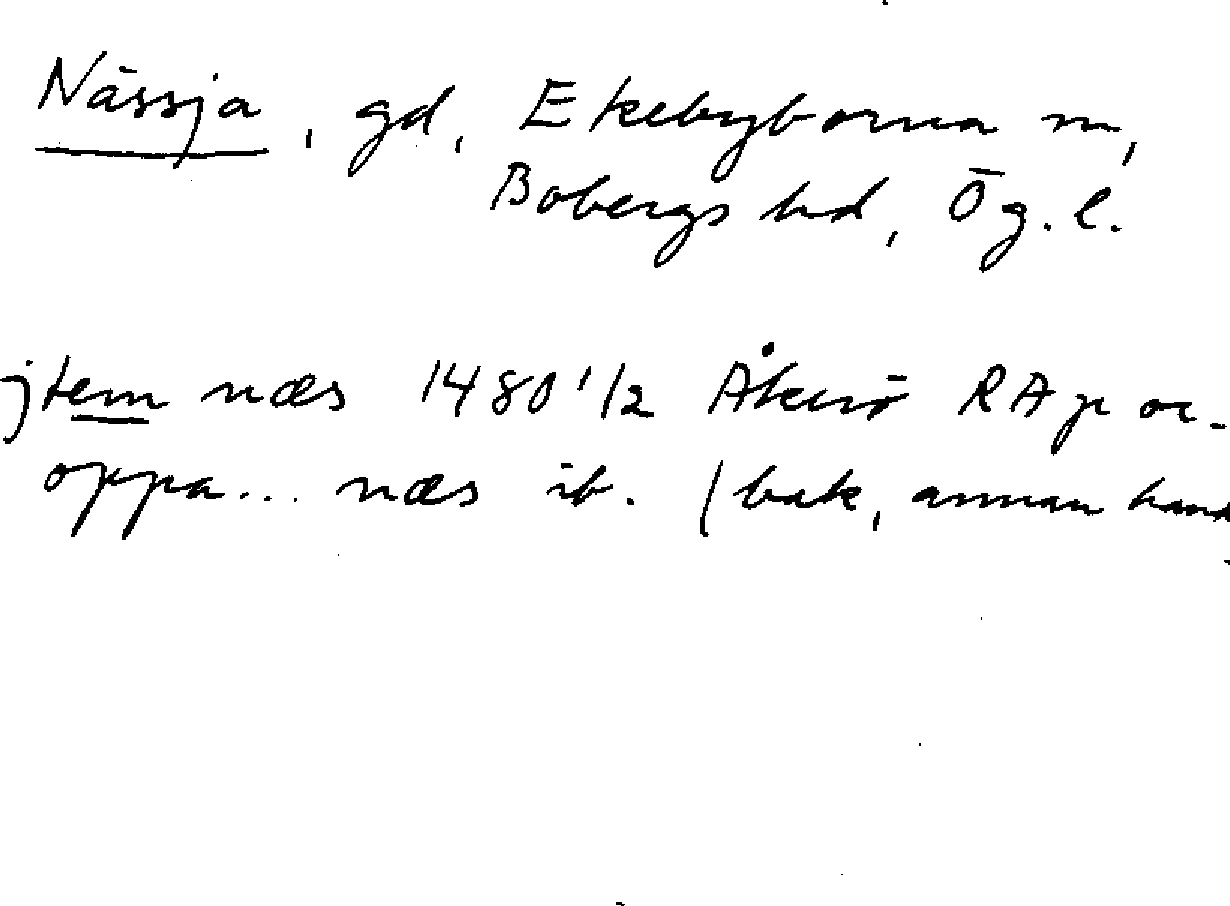 Nässja, gd, Ekebyborna sn,
Bobergs hd, Ög. l.
jtem næs 1480 1/2 Åkerö RAp or.
oppa... næs ib. (bak, annan hand